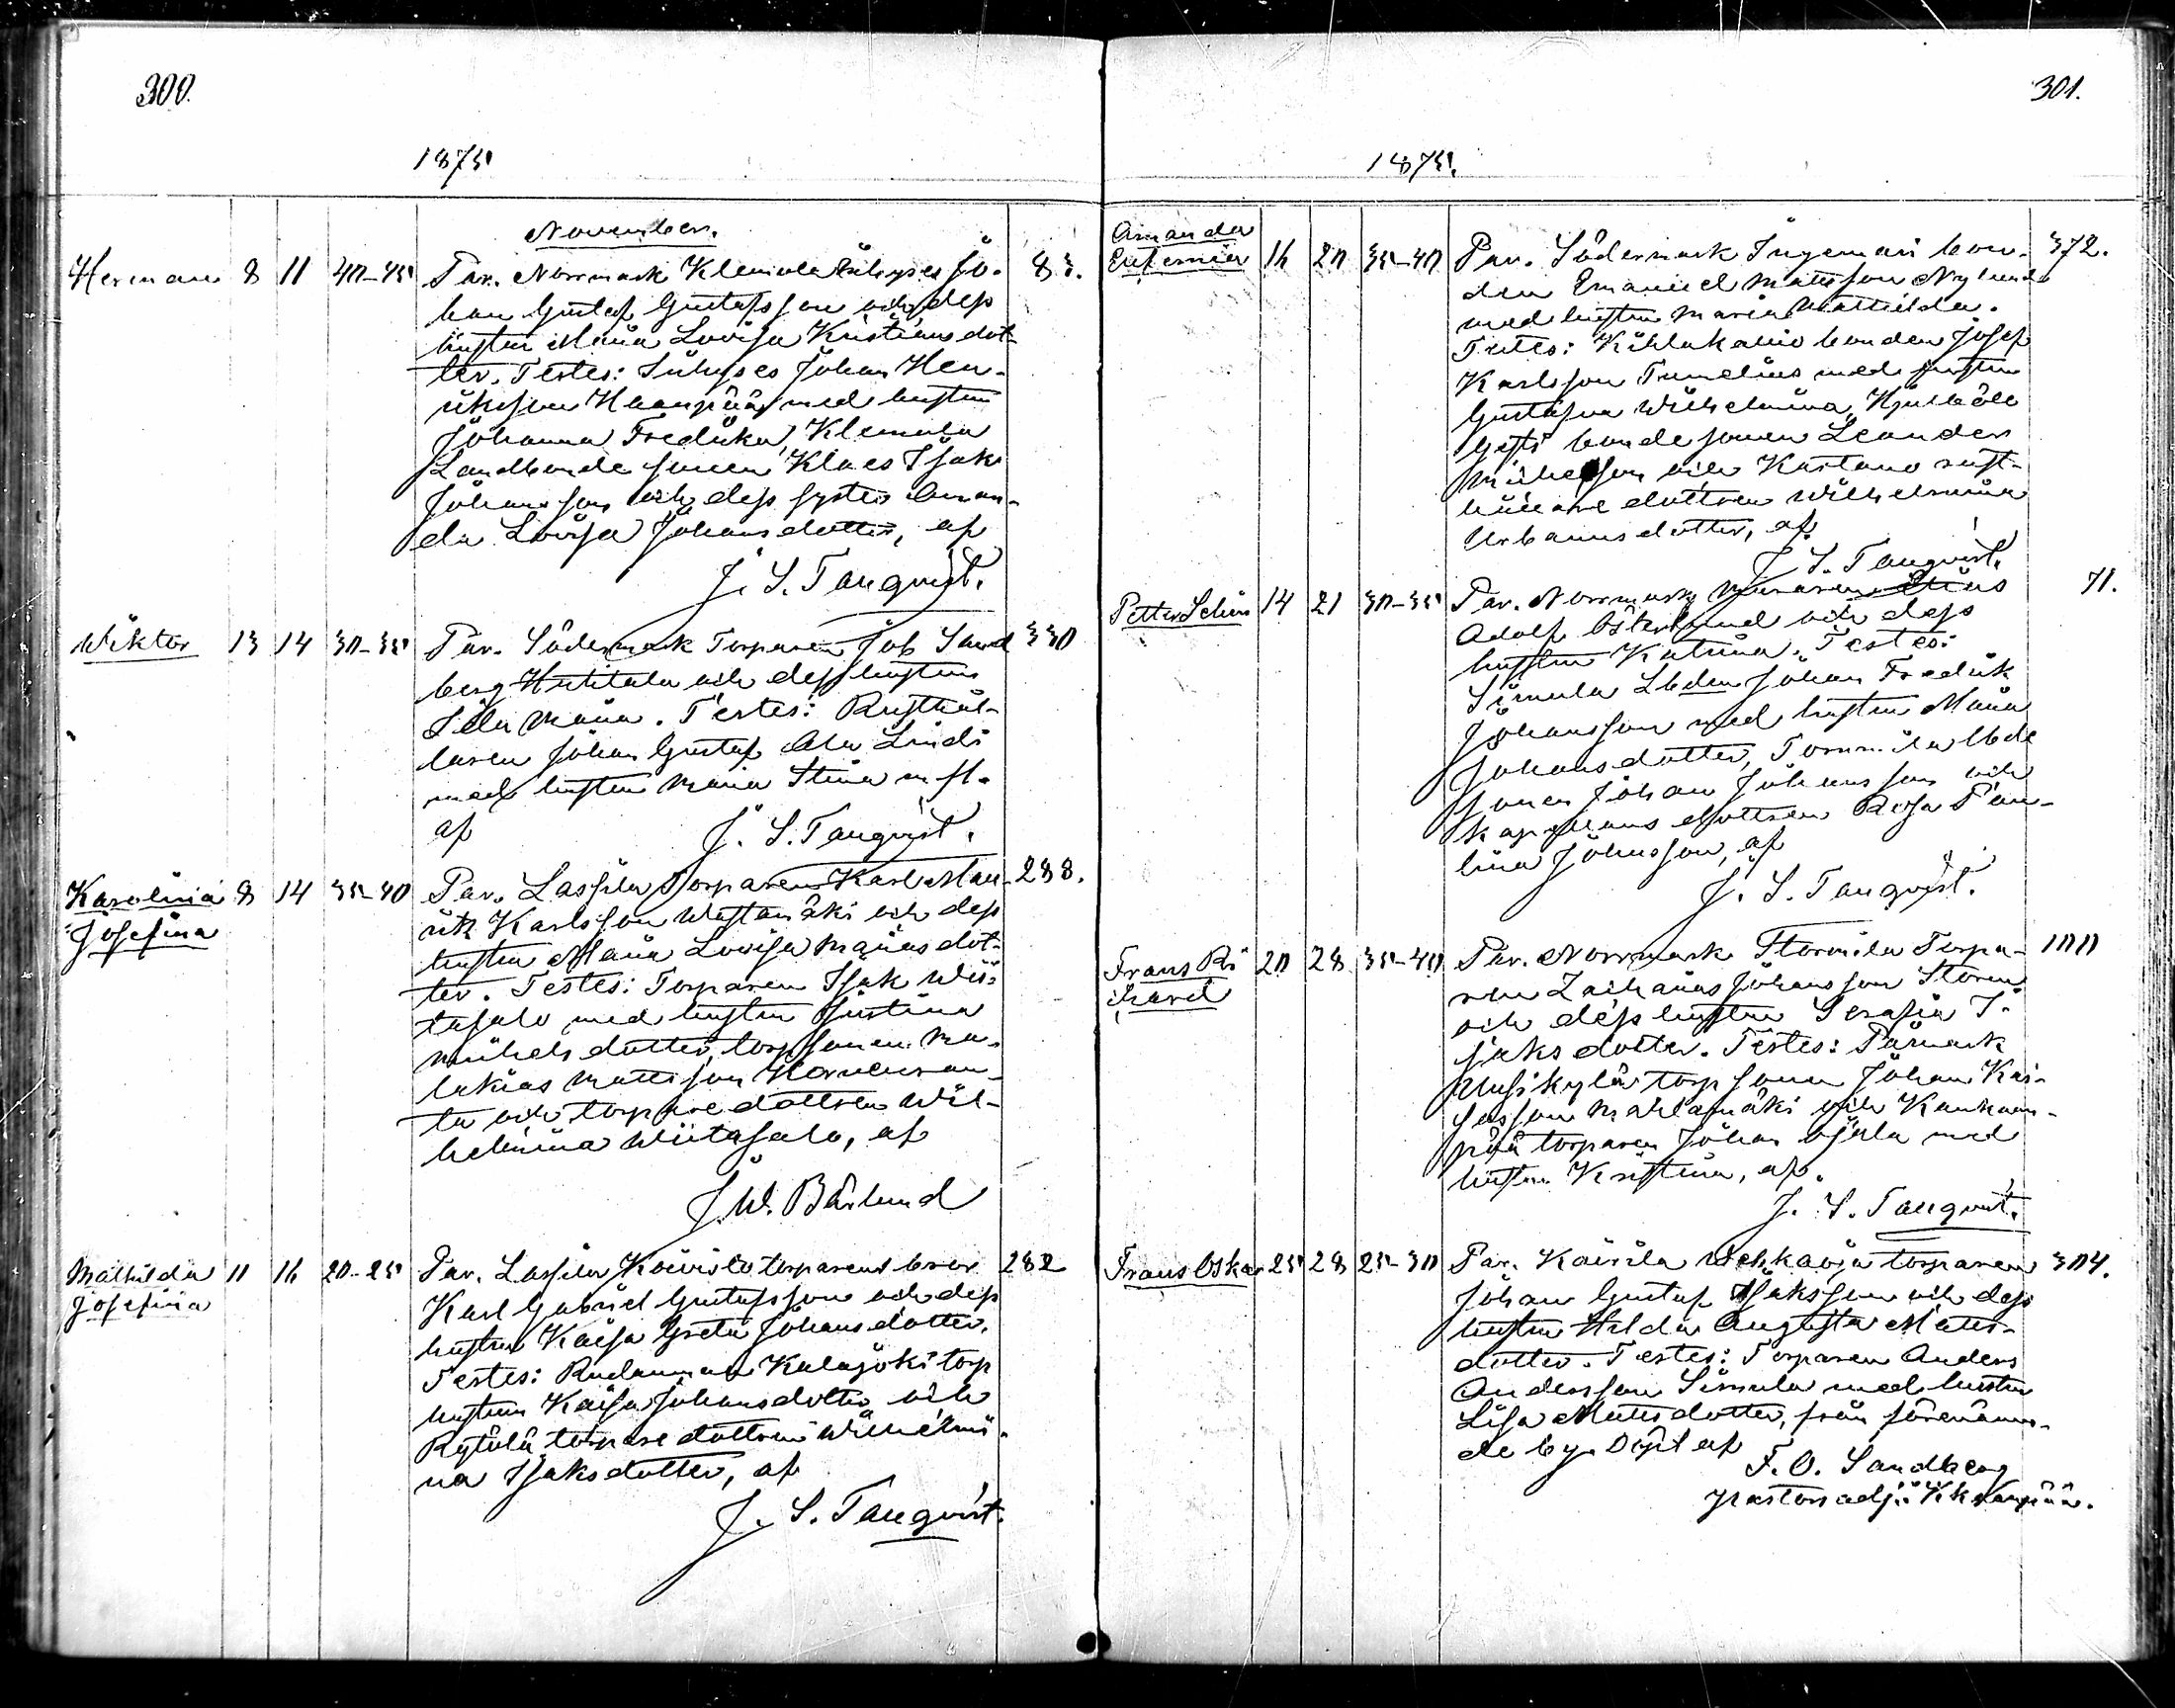 300.
1875.
November.
Herman 8 11 40-45 Par. Norrmark Klemola Inhyses Jo- 83.
han Gustaf Gustafsson och dess
hustru Maria Lovisa Kristiansdot-
ter. Testes: Inhyses Johan Hen-
riksson Haanpää med hustru
Johanna Fredrika, Klemola
Landbonde sonen Klaes Isak
Johansson och dess syster Aman-
da Lovisa Johansdotter, af
J. S. Tanqvist.
Wiktor 13 14 30-35 Par. Södermark Torparen Job Sand 330
berg Huhtala och dess hustru
Ida Maria. Testes: Rusthål-
laren Johan Gustaf Ala Lindi
med hustru Maria Stina m. fl.
af J. S. Tanqvist.
Karolina 8 14 35-40 Par. Lassila Torparen Karl Mau- 288.
Josefina
ritz Karlsson Wästamäki och dess
hustru Maria Lovisa Mariasdot-
ter. Testes: Torparen Isak Wii-
tasalo med hustru Justina
Mikelsdotter, torpsonen Ma-
lakias Mattsson
ta och torpare dottren Wil-
helmina Wiitasalo, af
J. W. Bärlund
Mathilda 11 16 20-25 Par. Lassila Koivisto torparens bror 282
Josefina
Karl Gabriel Gustafsson och dess
hustru Kajsa Greta Johansdotter.
Testes: Rudanmaa Kalajoki torp
hustrun Kajsa Johansdotter och
Rytölä torpare dottren Wilhelmi-
na Isaksdotter, af
J. S. Tanqvist.
301.
1875.
Amanda
Eufemia 16 20 35-40 Par. Södermark Ingemari bon- 372.
den Emanuel Mattsson Nylund
med hustru Maria Mathilda.
Testes: bonden Josef
Karlsson Tunelius med hustru
Gustafva Wilhelmina,
bondesonen Leander
Mikelsson och Kastano rust-
hållare dottren Wilhelmina
Urbanusdotter, af
J. S. Tanqvist.
Petter Selim 14 21 30-35 Par. Norrmark 71.
Adolf Österlund och dess
hustru Katrina. Testes:
Simula Lbden Johan Fredrik
Johansson med hustru Maria
Johansdotter, Tommila lbde
sonen Johan Johansson och
kaptens dottren Rosa Pau-
lina Johnsson, af
J. S. Tanqvist.
Frans Ri 20 28 35-40 Par. Norrmark Stormila Torpa- 100
chard
ren Zacharias Johansson Storm
och dess hustru Serafia I-
saksdotter. Testes: Påmark
Uusikylä torpsonen Johan Kai-
Mahlamäki och Kankaan-
pää torparen Johan Ojala med
hustru Kristina, af.
J. S. Tanqvist.
Frans Oskar 25 28 25-30 Par. Kairila Wehkaoja torparen 304.
Johan Gustaf Isaksson och dess
hustru Hilda Augusta Matts-
dotter. Testes: Torparen Anders
Andersson Simula med hustru
Lisa Mattsdotter, från förenämn-
de by. Döpt af F. O. Sandberg
pastorsadj. i Kankaanpää.